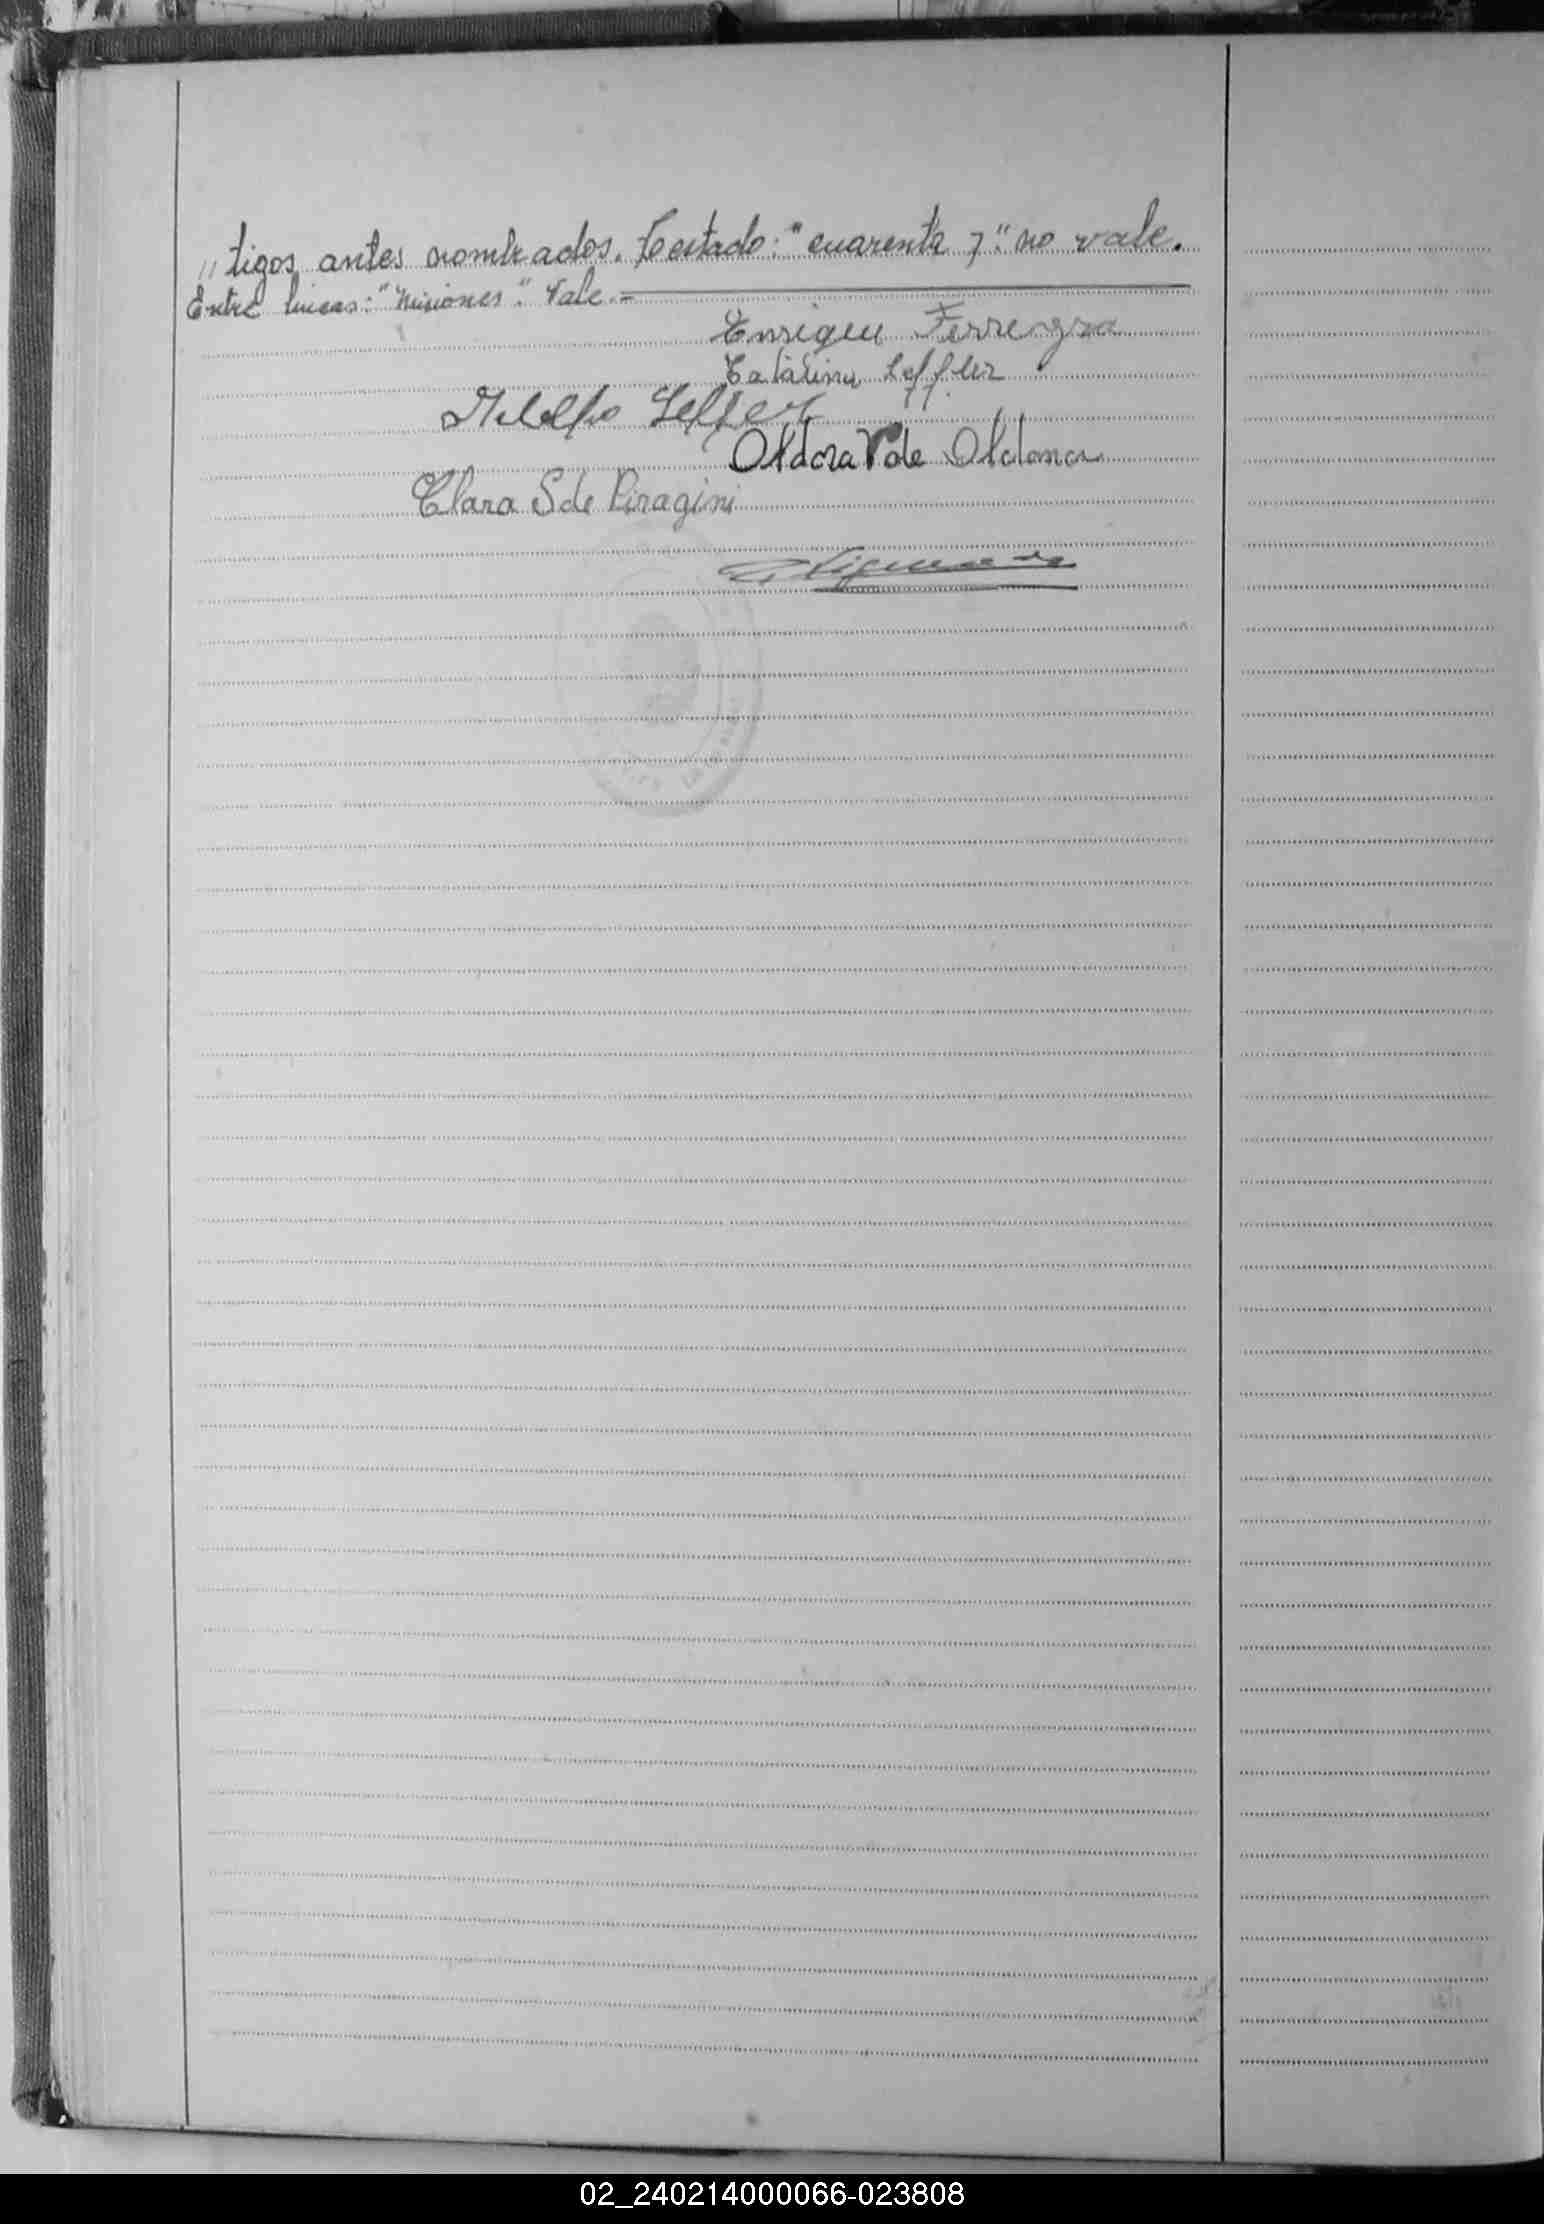 „tigos antes nombrados. Testado: "cuarenta y". no vale.
Entre lineas: "Misiones". Vale.=
Enrique Ferreyra
Catalina Leffler
Adolfo Leffler
Aldora V de Aldana
Clara S de Piragini
02_240214000066-023808